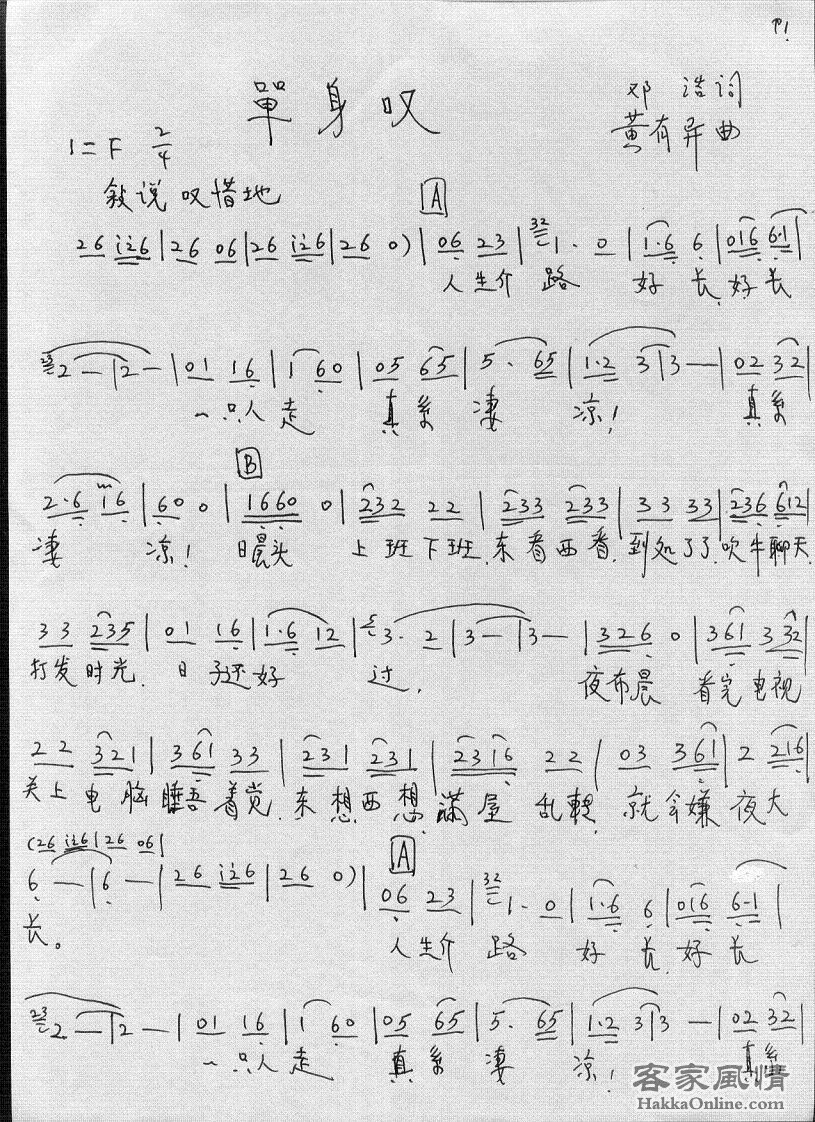 P1
單身叹
邓浩词
1=F 2/4
黄有异曲
叙说 叹惜地
A
26 i26 | 26 06 | 26 i26 | 26 0) | 06 23 | 32 1· 0 | 1·6 6 | 016 6·1 |
人生介 路 好 长, 好 长
23 2 — | 2 — | 01 16 | 1 60 | 05 65 | 5· 65 | 1·2 3 | 3 — | 02 32 |
一只人 走 真系 凄 凉! 真系
B
2·6 16 | 60 0 | 1660 0 | 232 22 | 233 233 | 33 33 | 236 612 |
凄 凉! 日晨头 上班下班, 东看西看, 到处了了, 吹牛聊天,
33 235 | 01 16 | 1·6 12 | 5 3· 2 | 3 — | 3 — | 326 0 | 361 332 |
打发时光, 日子还好 过, 夜布晨 看完电视
22 321 | 361 33 | 231 231 | 2316 22 | 03 361 | 2 216 |
关上电脑 睡吾着觉, 东想西想, 满屋乱轉, 就会嫌 夜大
(26 i26 | 26 06 |
6 — | 6 — | 26 i26 | 26 0) | 06 23 | 32 1· 0 | 1·6 6 | 016 6·1 |
A
长。 人生介 路 好 长, 好 长
23 2 — | 2 — | 01 16 | 1 60 | 05 65 | 5· 65 | 1·2 3 | 3 — | 02 32 |
一只人 走 真系 凄 凉! 真系
客家風情
HakkaOnline.com